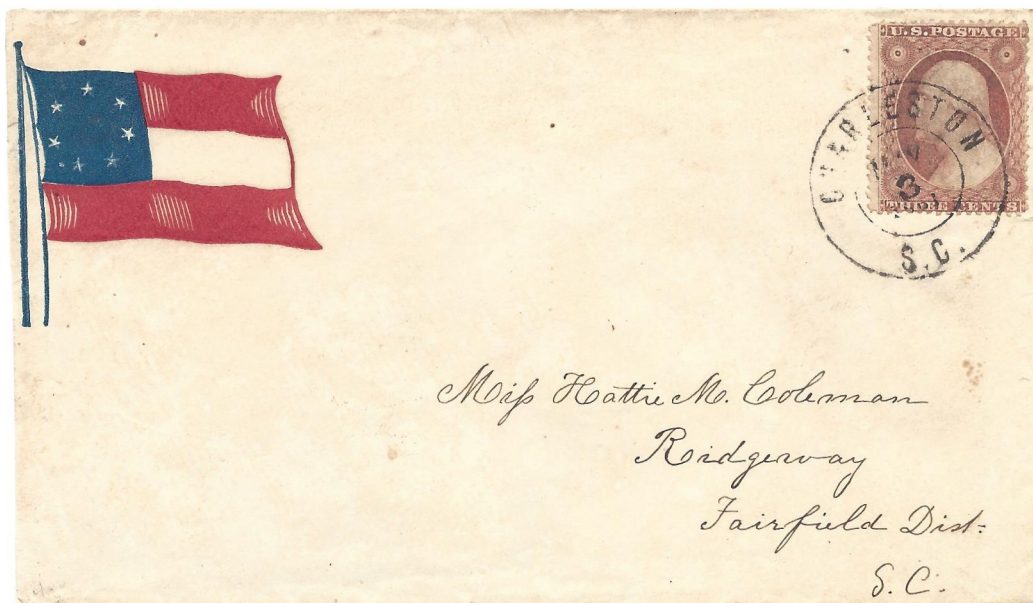 U.S. POSTAGE
THREE CENTS
CHARLESTON
3
S.C.
Miſs Hattie M. Coleman
Ridgeway
Fairfield Dist:
S. C.